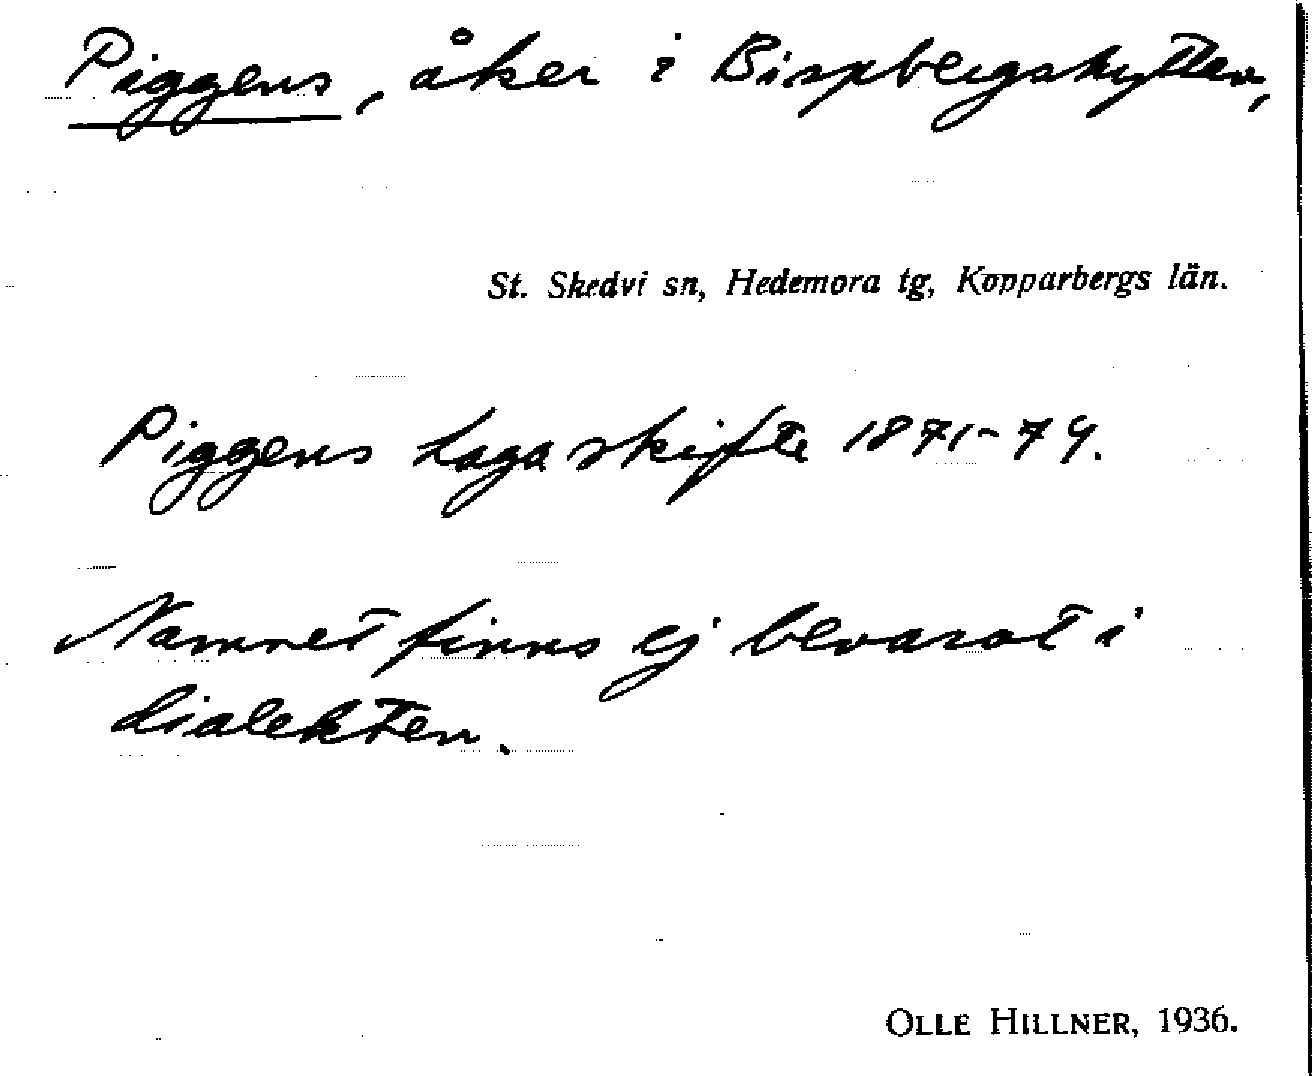 Piggens, åker i Bispbergshyttan,
St. Skedvi sn, Hedemora tg, Kopparbergs län.
Piggens Laga skifte 1871-79.
Namnet finns ej bevarat i
dialekten.
OLLE HILLNER, 1936.